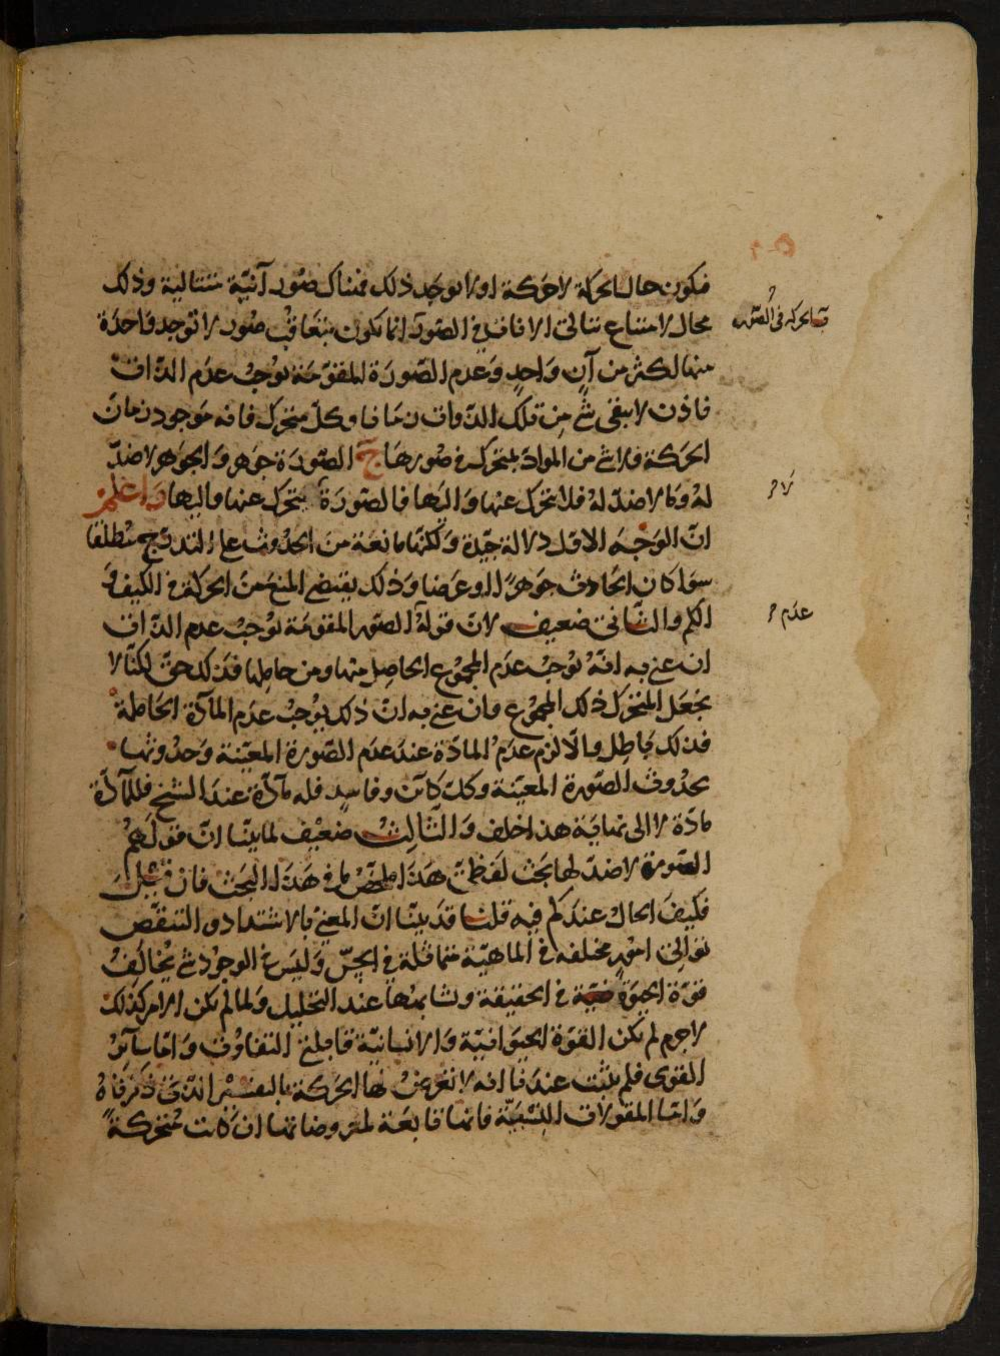 فيكون حال الحركة لا حركة اولا يوجد ذلك فهناك صور آنية متتالية وذلك
محال لامتناع تتالى الانات فاذن الصور انما تكون بتعاقب صور لا توجد واحدة
منها لكثر من آن واحد وعدم الصورة المقومة يوجب عدم الذات
فاذن لا يبقى شئ من تلك الذوات زمانا وكل متحرك فانه موجود زمان
الحركة فلا شئ من المواد بمتحرك فى صورها ج الصورة جوهر والجوهر لا ضد
له وما لا ضد له فلا تحرك عنها واليها فالصورة يتحرك عنها واليها واعلم
ان الوجه الاول دلالة جيدة ولكنها مانعة من الحدوث على التدريج مطلقا
سوا كان الحادث جوهرا او عرضا وذلك يقتضى المنع من الحركة فى الكيف و
الكم والثانى ضعيف لان قوله الصور المقومة يوجب عدم الذات
ان عنى به انه يوجب عدم المجموع الحاصل منها ومن حاملها فذلك حق لكنا لا
نجعل المتحرك ذلك المجموع وان عنى به ان ذلك يوجب عدم المادة الحاملة
فذلك باطل والا لزم عدم المادة عند عدم الصورة المعينة وحدوثها
بحدوث الصورة المعينة وكل كاين وفاسد فله مادة عند الشيخ فللمادة
مادة لا الى نهاية هذا خلف والثالث ضعيف لما بينا ان قولهم
الصورة لا ضد لها بحث لفظى هذا ملخص ما فى هذا البحث فان قيل
فكيف الحال عندكم فيه قلنا قد بينا ان المعنى بالاشتداد والتنقص
توالى امور مختلفه فى الماهية متماثلة فى الحس وليس فى الوجود شئ يخالف
قوة الحيوة فى الحقيقة وتشابهها عند التخليل ولما لم يكن الامر كذلك
لا جرم لم يكن القوة الحيوانية والانسانية قابلة التفاوت واما ساير
القوى فلم يثبت عندنا انه لا تعرض لها الحركة بالتفسير الذى ذكرناه
واما المقولات النسبية فانها تابعة لمعروضاتها ان كانت متحركة
عدم